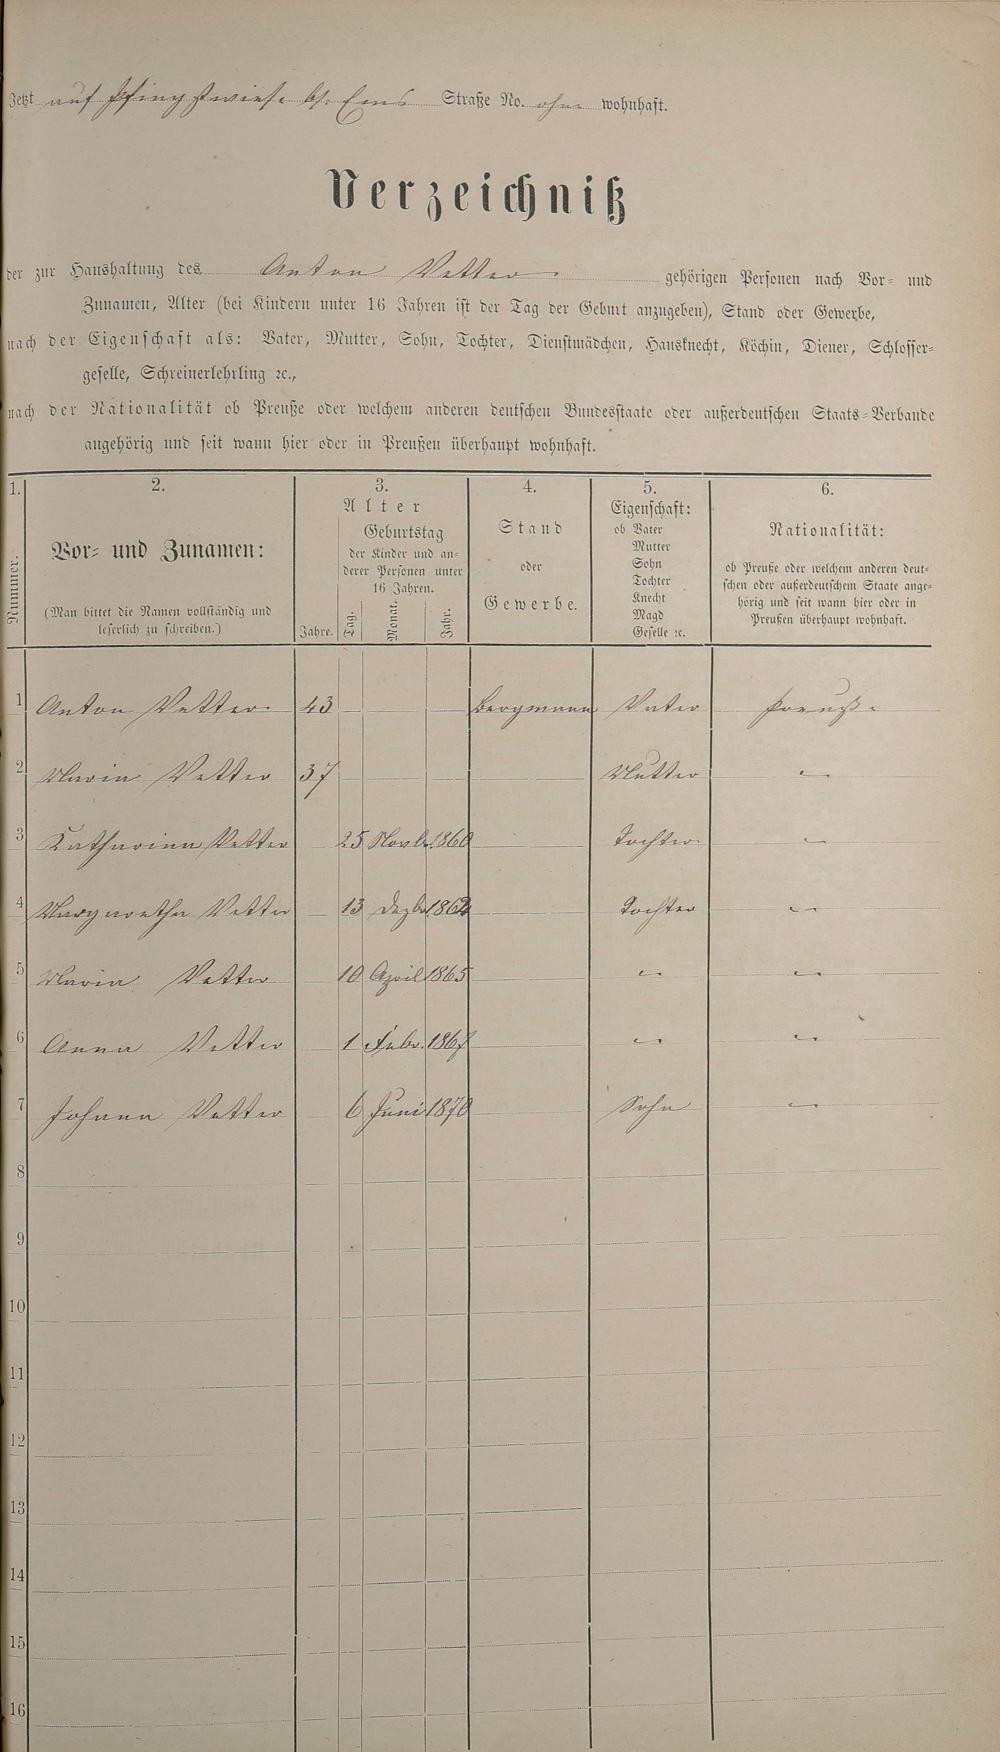 Jetzt auf Pfingstwiese bei Ems Straße No. ohne wohnhaft.
Verzeichniß
der zur Haushaltung des Anton Vetter gehörigen Personen nach Vor- und
Zunamen, Alter (bei Kindern unter 16 Jahren ist der Tag der Geburt anzugeben), Stand oder Gewerbe,
nach der Eigenschaft als: Vater, Mutter, Sohn, Tochter, Dienstmädchen, Hausknecht, Köchin, Diener, Schlosser-
geselle, Schreinerlehrling ꝛc.,
nach der Nationalität ob Preuße oder welchem anderen deutschen Bundesstaate oder außerdeutschen Staats-Verbande
angehörig und seit wann hier oder in Preußen überhaupt wohnhaft.
1.
Nummer.
2.
Vor- und Zunamen:
(Man bittet die Namen vollständig und
leserlich zu schreiben.)
3.
Alter
Jahre.
Geburtstag
der Kinder und an-
derer Personen unter
16 Jahren.
Tag.
Monat.
Jahr.
4.
Stand
oder
Gewerbe.
5.
Eigenschaft:
ob Vater
Mutter
Sohn
Tochter
Knecht
Magd
Geselle ꝛc.
6.
Nationalität:
ob Preuße oder welchem anderen deut-
schen oder außerdeutschem Staate ange-
hörig und seit wann hier oder in
Preußen überhaupt wohnhaft.
1 Anton Vetter 43 Bergmann Vater Preuße
2 Maria Vetter 37 Mutter "
3 Katharina Vetter 25 Novbr. 1860 Tochter "
4 Margaretha Vetter 13 Dezbr. Tochter "
5 Maria Vetter 10 April 1865 " "
6 Anna Vetter 1 Febr. 1867 " "
7 Johann Vetter 6 Juni 1870 Sohn "
8
9
10
11
12
13
14
15
16